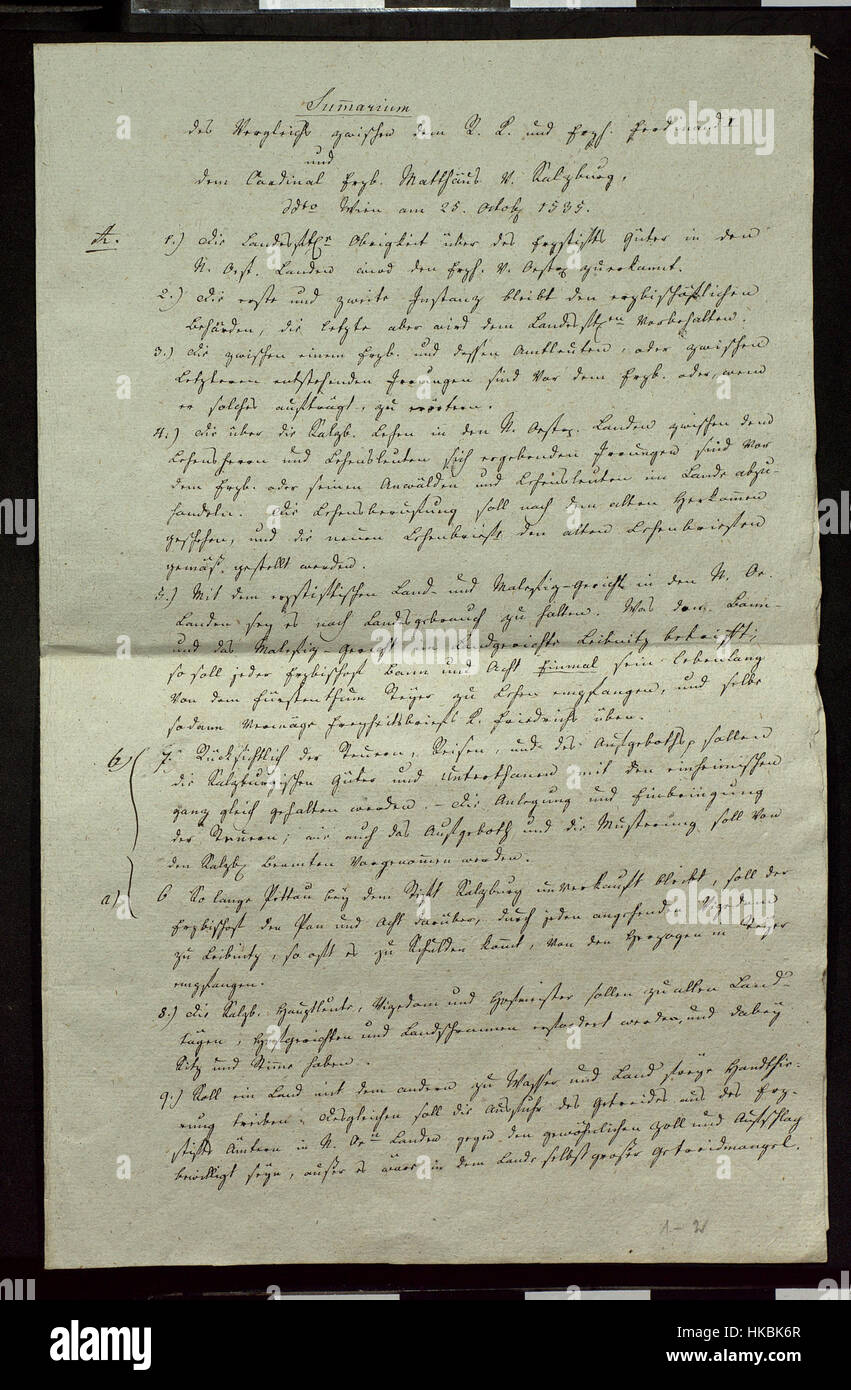 Sumarium
des Vergleichs zwischen dem R. K. und Erzh. Ferdinand I
und
dem Cardinal Erzb. Matthäus v. Salzburg,
ddto Wien am 25. Octob 1535.
A. 1.) Die Landesf. Obrigkeit über des Erzstifts Güter in den
N. Oest. Landen wird den Erzh. v. Oestr zuerkannt.
2.) Die erste und zweite Instanz bleibt den erzbischöflichen
Behörden, die letzte aber wird dem Landesf. vorbehalten.
3.) Die zwischen einem Erzb. und dessen Amtleuten, oder zwischen
Letzteren entstehenden Irrungen sind vor dem Erzb. oder, wem
er solches aufträgt, zu erörtern.
4.) Die über die Salzb. Lehen in den N. Oestr. Landen zwischen dem
Lehensherrn und Lehensleuten sich ergebenden Irrungen sind vor
dem Erzb. oder seinen Anwälden und Lehensleuten im Lande abzu-
handeln. Die Lehensberufung soll nach dem alten Herkommen
geschehen, und die neuen Lehenbriefe den alten Lehenbriefen
gemäß gestellt werden.
5.) Mit dem erzstiftischen Land- und Malefiz-Gericht in den N. Oe.
Landen sey es nach Landsgebrauch zu halten. Was den Bann-
und das Malefiz-Gericht im Landgerichte Leibnitz betrifft;
so soll jeder Erzbischof Bann und Acht Einmal sein Lebenlang
von dem Fürstenthum Steyer zu Lehen empfangen, und selbe
sodann vermöge Freyheitsbriefs K. Friedrichs üben.
b) 7. Rücksichtlich der Steuern, Reisen, und des Aufgeboths, sollen
die Salzburgischen Güter und Unterthanen mit den einheimischen
ganz gleich gehalten werden. - Die Anlegung und Einbringung
der Steuern, wie auch das Aufgeboth und die Musterung soll von
den Salzb. Beamten vorgenommen werden.
a) 6 So lange Pettau bey dem Stift Salzburg unverkauft bleibt, soll der
Erzbischof den Pan und Acht darüber, durch jeden angehenden Vizedom
zu Leibnitz, so oft es zu Schulden komt, von den Herzogen in Steyer
empfangen.
8.) Die Salzb. Hauptleute, Vizedom und Hofmeister sollen zu allen Land-
tägen, Hofgerichten und Landschrannen erfordert werden, und dabey
Sitz und Stimme haben.
9.) Soll ein Land mit dem andern zu Wasser und Land freye Handthie-
rung treiben. Desgleichen soll die Ausfuhr des Getreides aus des Erz-
stifts Ämtern in N. Oe Landen gegen den gewöhnlichen Zoll und Aufschlag
bewilligt seyn, außer es wäre in dem Lande selbst großer Getreidmangel.
1-2
alamy
Image ID: HKBK6R
www.alamy.com